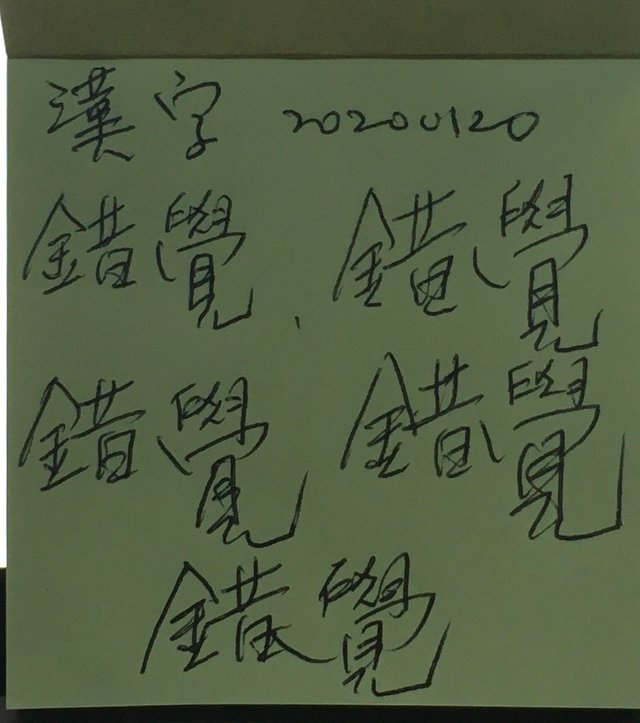 漢字 20200120
錯覺、錯覺
錯覺 錯覺
錯覺